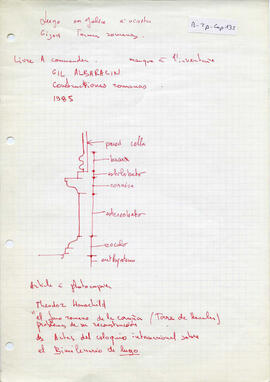 Lugo en galice a
Gijon Termas romanas.
Livre A commander. manque à l'inventaire
GIL ALBARACIN
Construcciones romanas
1985
pared cella
basa
estilobato
cornisa
estereobato
zocalo
euthynteria
Article à photocopier
Theodor Hauschild
"el faro romano de la coruña (Torre de hercules)
problemas de su reconstruccion
ds Actas del coloquio internacional sobre
el Bimilenario de Lugo